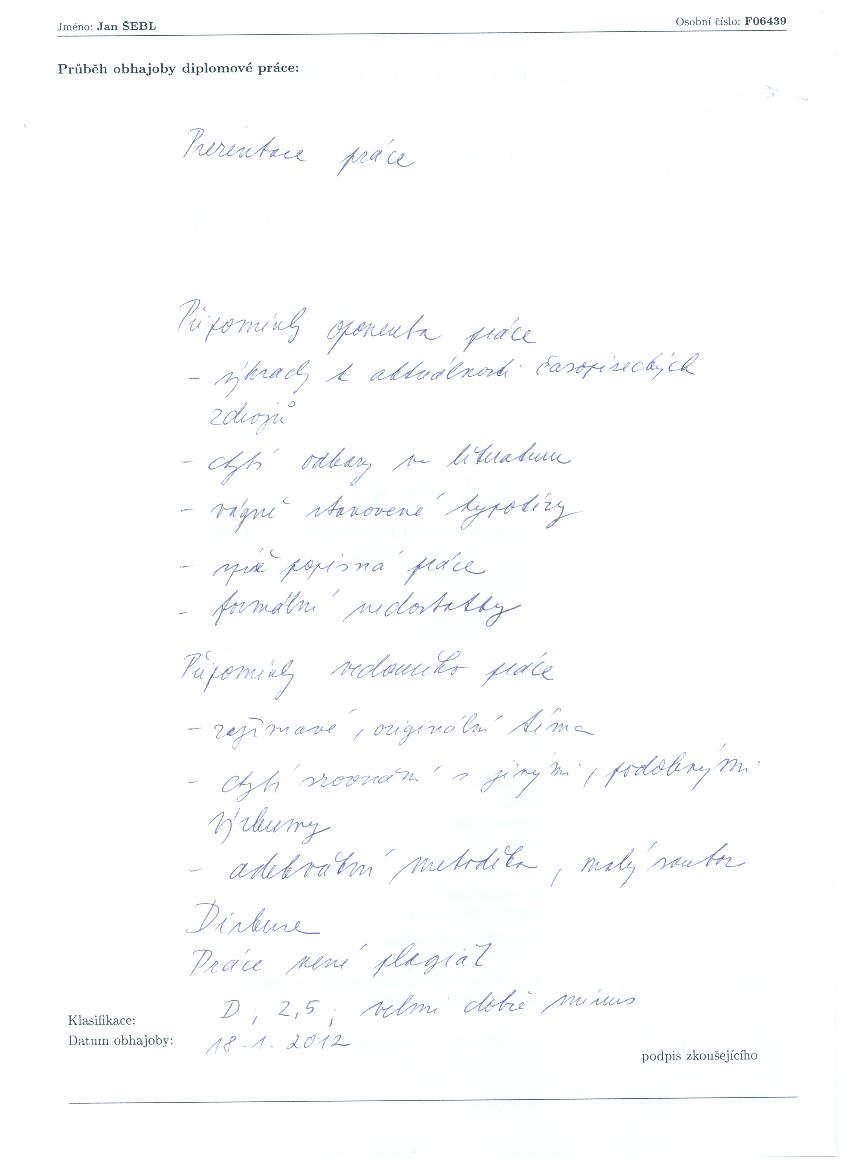 Jméno: Jan ŠEBL
Osobní číslo: F06439
Průběh obhajoby diplomové práce:
Prezentace práce
Připomínky oponenta práce
- výhrady k aktuálnosti časopiseckých
zdrojů
- chybí odkazy na literaturu
- vágně stanovené hypotézy
- spíše popisná práce
- formální nedostatky
Připomínky vedoucího práce
- zajímavé, originální téma
- chybí srovnání s jinými, podobnými
výzkumy
- adekvátní metodika, malý soubor
Diskuse
Práce není plagiát
Klasifikace: D; 2,5; velmi dobře minus
Datum obhajoby: 18.1.2012
podpis zkoušejícího